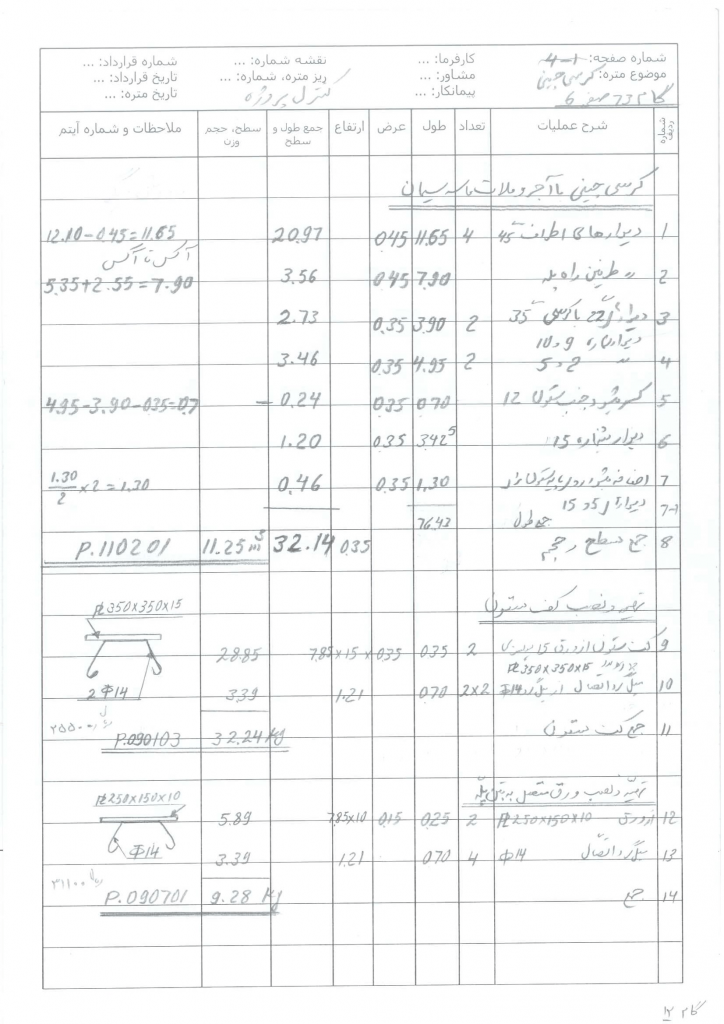 شماره صفحه: 1-4 کارفرما: ... نقشه شماره: ... شماره قرارداد: ...
موضوع متره: کرسی چینی مشاور: ... ریز متره، شماره: ... تاریخ قرارداد: ...
گام 73 صفر 6 پیمانکار: ... کنترل پروژه تاریخ متره: ...
شماره ردیف شرح عملیات تعداد طول عرض ارتفاع جمع طول و سطح سطح، حجم وزن ملاحظات و شماره آیتم
کرسی چینی با آجر و ملات ماسه سیمان
1 دیوارهای اطراف 45 4 11.65 0.45 20.97 12.10-0.45=11.65
آکس تا آکس
2 〃 طرفین راه پله 7.90 0.45 3.56 5.35+2.55=7.90
3 دیوار 22 با کرسی 35 2 3.90 0.35 2.73
دیوارهای 9 و 10
4 〃 2 و 5 2 4.95 0.35 3.46
5 کسر میشود جنب ستون 12 0.70 0.35 - 0.24 4.95-3.90-0.35=0.7
6 دیوار شماره 15 3.425 0.35 1.20
7 اضافه میشود 1.30 0.35 0.46 1.30/2 ×2=1.30
7-1 دیوار 5 و 15 جمع طول 76.43
8 جمع سطح و حجم 0.35 32.14 11.25 m³ P.110201
تهیه و نصب کف ستون
PL 350×350×15
9 کف ستون از ورق 15 2 0.35 0.35 7.85×15× 28.85
PL 350×350×15
10 میلگرد اتصال از میلگرد Φ14 2×2 0.70 1.21 3.39 2Φ14
11 جمع کف ستون 32.24 Kg P.090103
۲۵۵۰۰
تهیه و نصب ورق متصل به بتن پله
PL 250×150×10
12 از ورق PL 250×150×10 2 0.25 0.15 7.85×10 5.89
13 میلگرد اتصال Φ14 4 0.70 1.21 3.39 Φ14
14 جمع 9.28 Kg P.090701
۳۱۱۰۰
گام ۱۲